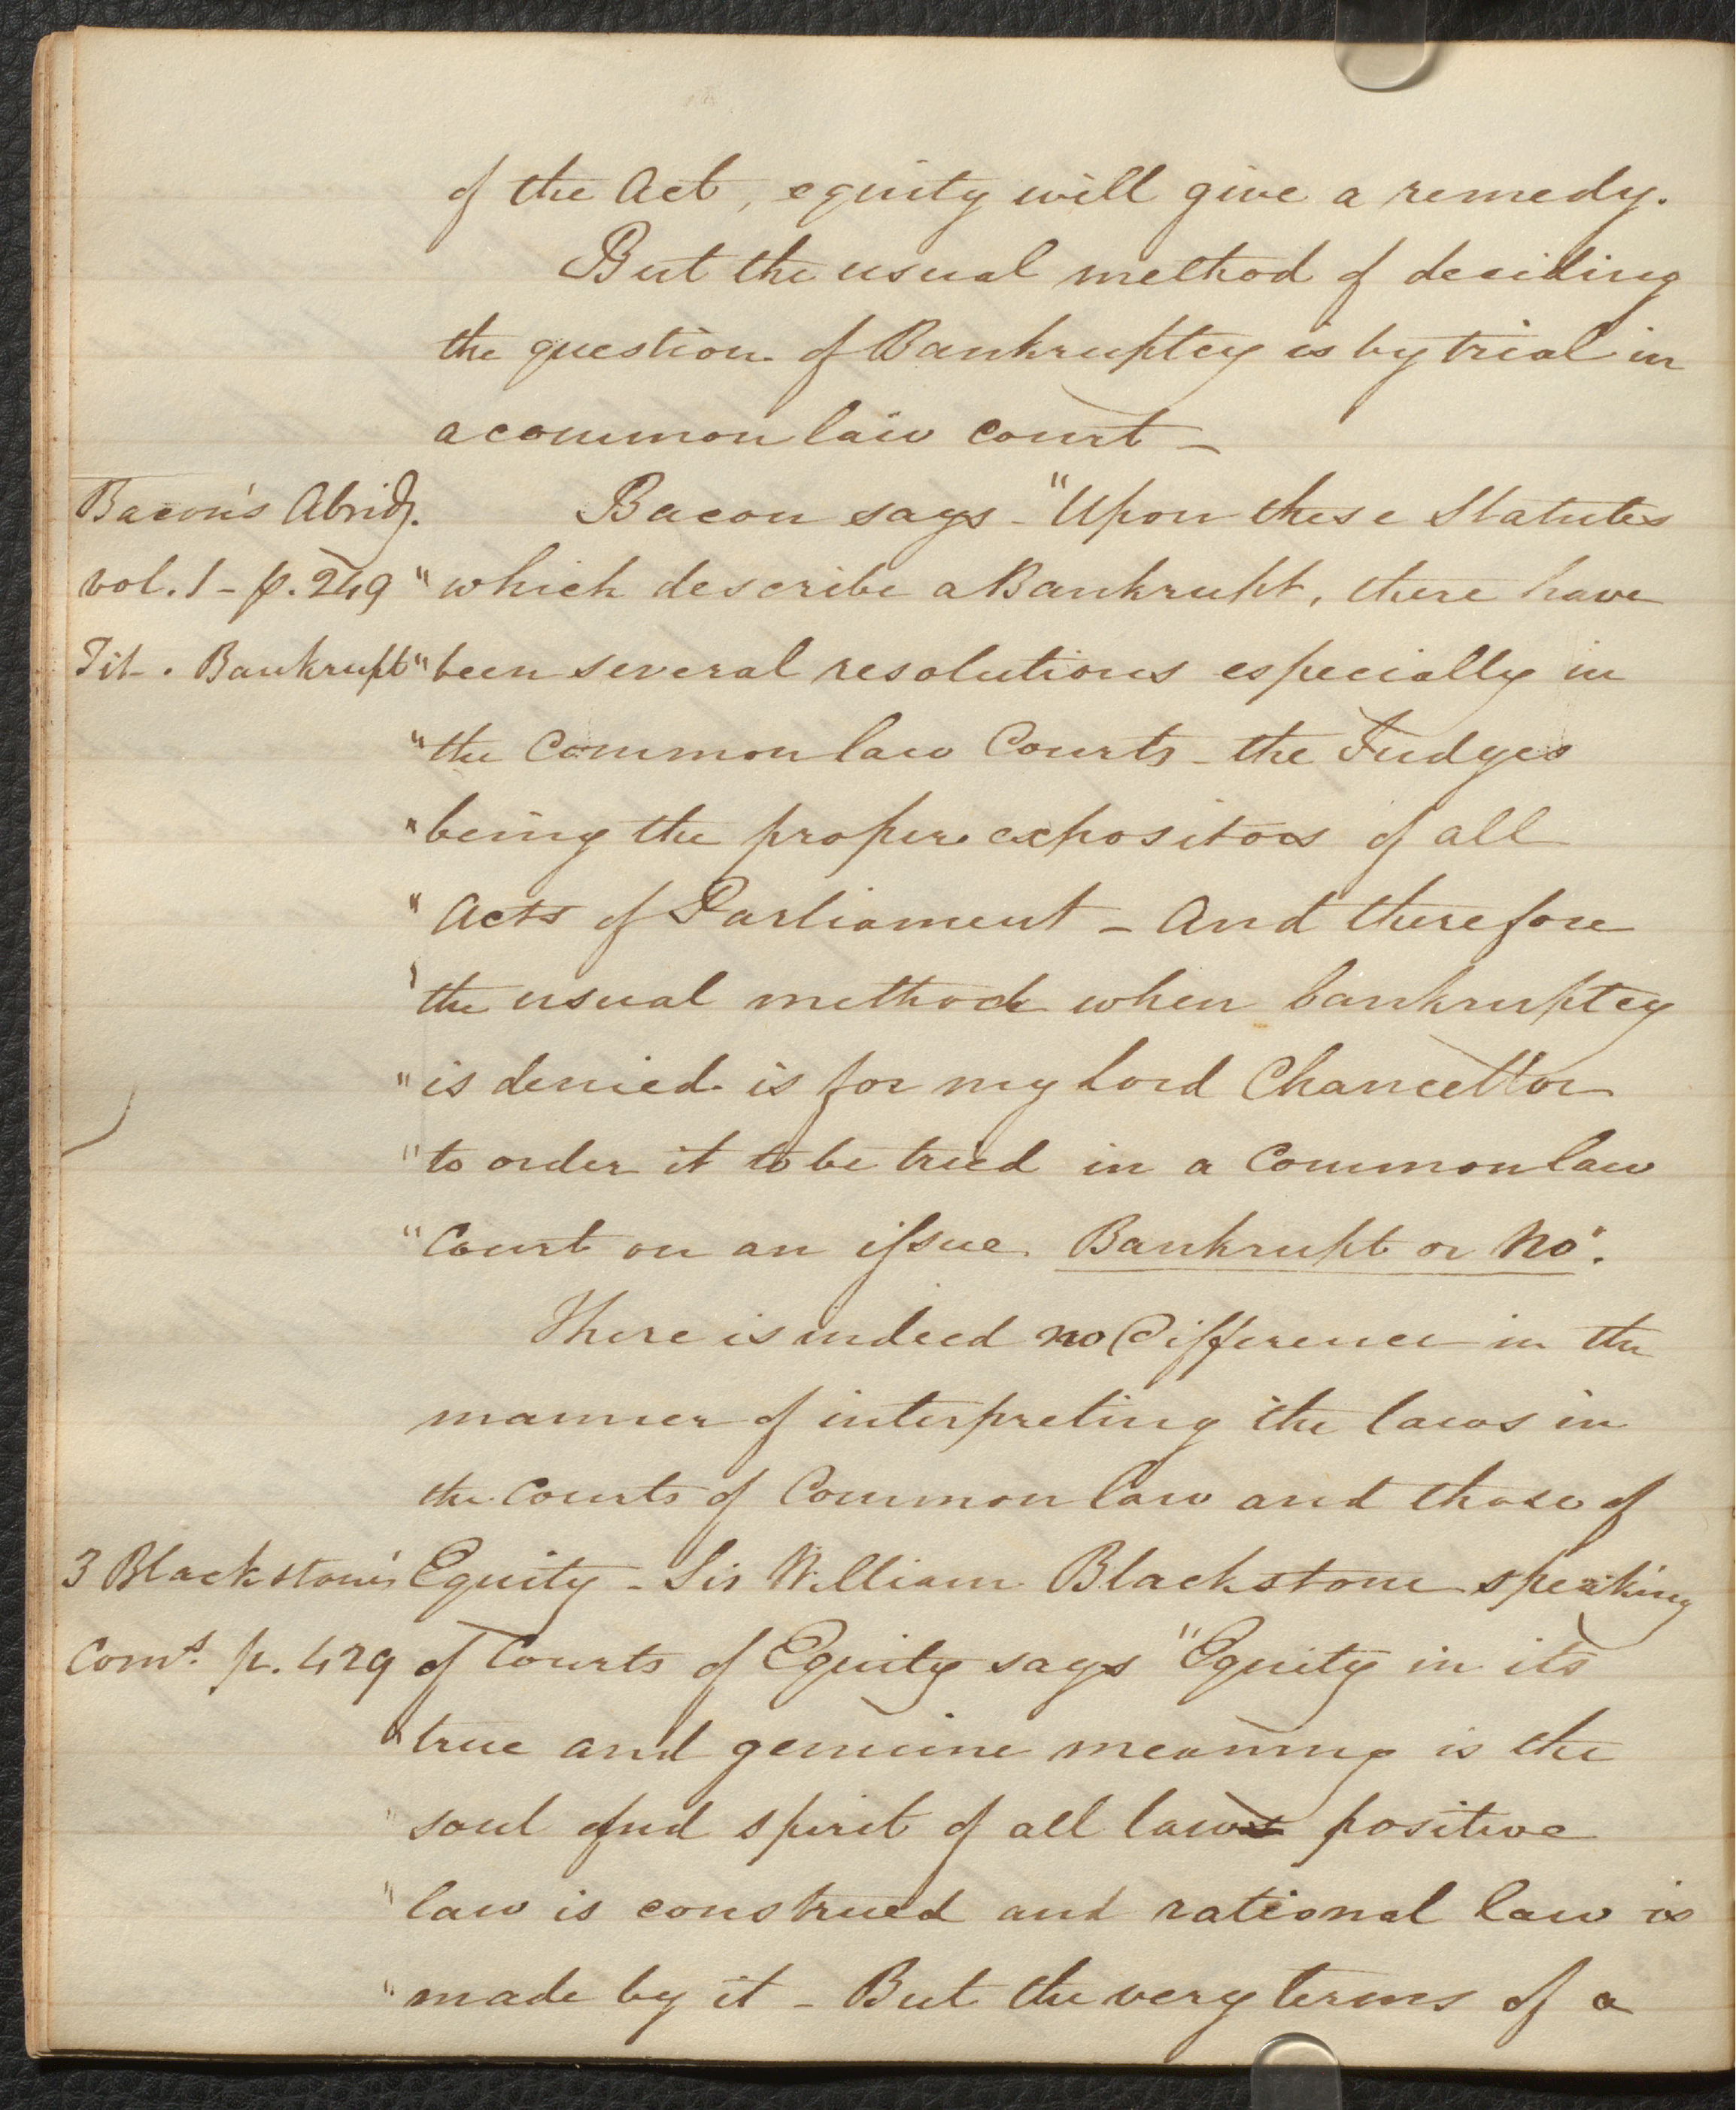 of the Act, equity will give a remedy.
But the usual method of deciding
the question of Bankruptcy is by trial in
a common law court –
Bacon's Abridg. Bacon says – "Upon these Statutes
vol. 1 – p. 249 "which describe a Bankrupt, there have
Tit. Bankrupt "been several resolutions especially in
"the Common law Courts – the Judges
"being the proper expositors of all
"Acts of Parliament – And therefore
'the usual method when bankruptcy
"is denied is for my Lord Chancellor
"to order it to be tried in a Common law
"Court on an issue Bankrupt or No".
There is indeed no Difference in the
manner of interpreting the laws in
the Courts of Common law and those of
3 Blackstone's Equity – Sir William Blackstone speaking
Coms. p. 429 of Courts of Equity says "Equity in its
"true and genuine meaning is the
"soul and spirit of all law positive
"law is construed and rational law is
"made by it – But the very terms of a